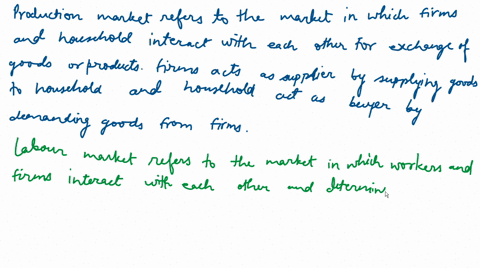 Production market refers to the market in which firms
and household interact with each other for exchange of
goods or products. Firms acts as supplier by supplying goods
to household and household act as buyer by
demanding goods from firms.
Labour market refers to the market in which workers and
firms interact with each other and determin